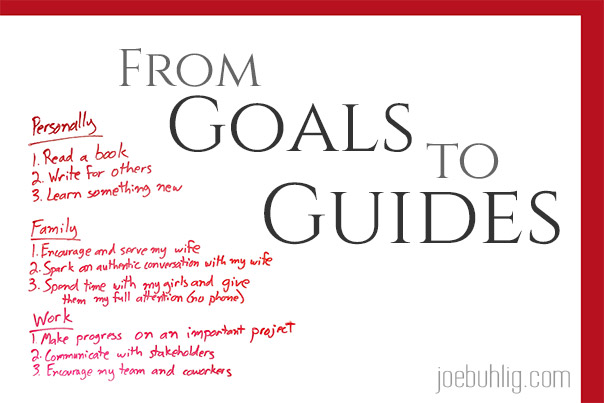 FROM
GOALS
TO
GUIDES
Personally
1. Read a book
2. Write for others
3. Learn something new
Family
1. Encourage and serve my wife
2. Spark an authentic conversation with my wife
3. Spend time with my girls and give
them my full attention (no phone)
Work
1. Make progress on an important project
2. Communicate with stakeholders
3. Encourage my team and coworkers
joebuhlig.com